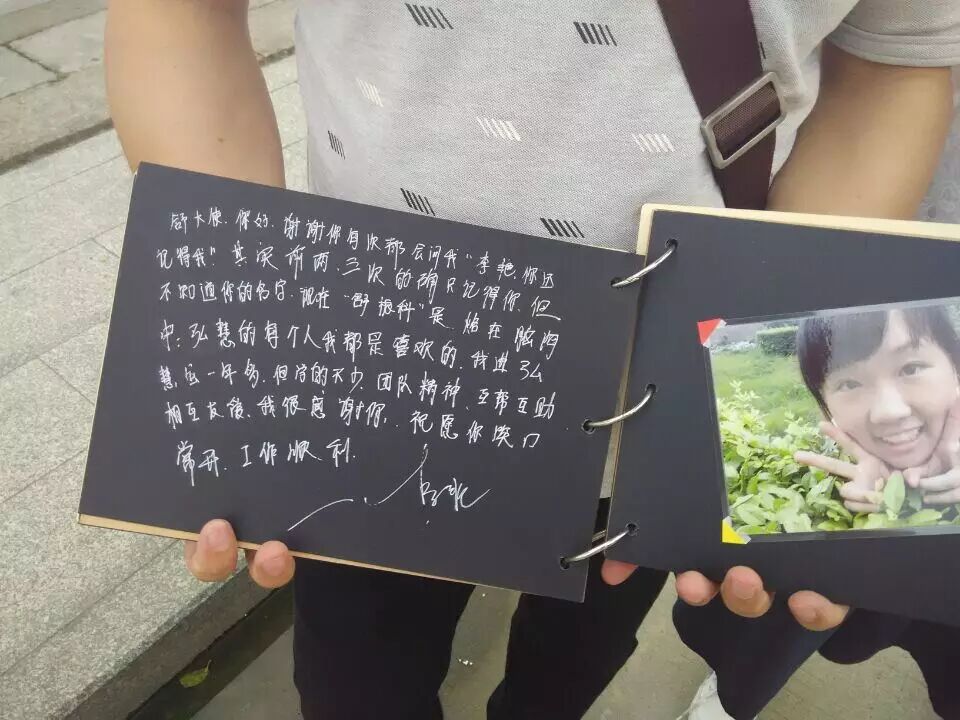 舒大使.你好.谢谢你每次都会问我"李艳.你还
记得我"其实前两.三次的确只记得你.但
不知道你的名字.现在"舒振科"是 始在脑海
中:弘慧的每个人我都是喜欢的.我进弘
慧.虽一年多.但学的不少.团队精神.互帮互助
相互友爱.我很感谢你.祝愿你笑口
常开.工作顺利.